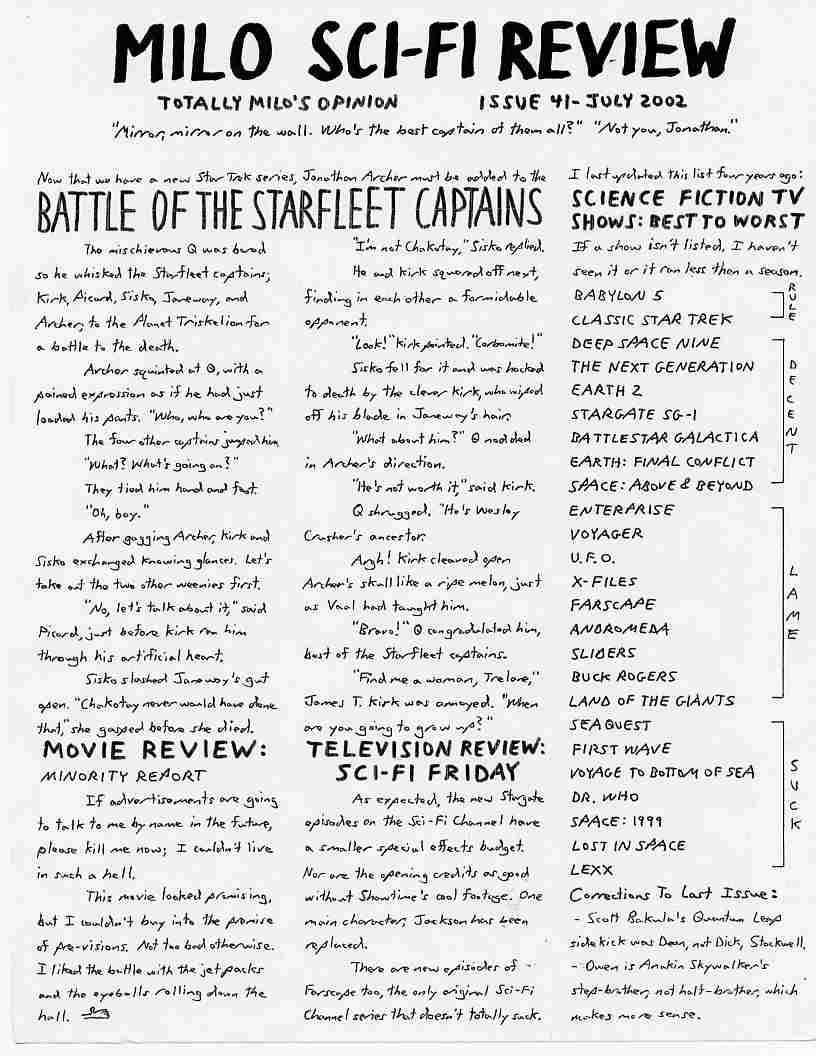 MILO SCI-FI REVIEW
TOTALLY MILO'S OPINION ISSUE 41 - JULY 2002
"Mirror, mirror on the wall. Who's the best captain of them all?" "Not you, Jonathan."
Now that we have a new Star Trek series, Jonathan Archer must be added to the
BATTLE OF THE STARFLEET CAPTAINS
The mischievous Q was bored
so he whisked the Starfleet captains;
Kirk, Picard, Sisko, Janeway, and
Archer; to the Planet Triskelion for
a battle to the death.
Archer squinted at Q, with a
pained expression as if he had just
loaded his pants. "Who, who are you?"
The four other captains jumped him.
"What? What's going on?"
They tied him hand and foot.
"Oh, boy."
After gagging Archer, Kirk and
Sisko exchanged knowing glances. Let's
take out the two other weenies first.
"No, let's talk about it," said
Picard, just before Kirk ran him
through his artificial heart.
Sisko slashed Janeway's gut
open. "Chakotay never would have done
that," she gasped before she died.
"I'm not Chakotay," Sisko replied.
He and Kirk squared off next,
finding in each other a formidable
opponent.
"Look!" Kirk pointed. "Corbomite!"
Sisko fell for it and was hacked
to death by the clever Kirk, who wiped
off his blade in Janeway's hair.
"What about him?" Q nodded
in Archer's direction.
"He's not worth it," said Kirk.
Q shrugged. "He's Wesley
Crusher's ancestor.
Argh! Kirk cleaved open
Archer's skull like a ripe melon, just
as Vaal had taught him.
"Bravo!" Q congradulated him,
best of the Starfleet captains.
"Find me a woman, Trelane,"
James T. Kirk was annoyed. "When
are you going to grow up?"
MOVIE REVIEW:
MINORITY REPORT
If advertisements are going
to talk to me by name in the future,
please kill me now; I couldn't live
in such a hell.
This movie looked promising,
but I couldn't buy into the premise
of pre-visions. Not too bad otherwise.
I liked the battle with the jet packs
and the eyeballs rolling down the
hall.
TELEVISION REVIEW:
SCI-FI FRIDAY
As expected, the new Stargate
episodes on the Sci-Fi Channel have
a smaller special effects budget.
Nor are the opening credits as good
without Showtime's cool footage. One
main character, Jackson has been
replaced.
There are new episodes of
Farscape too, the only original Sci-Fi
Channel series that doesn't totally suck.
I last updated this list four years ago:
SCIENCE FICTION TV
SHOWS: BEST TO WORST
If a show isn't listed, I haven't
seen it or it ran less then a season.
BABYLON 5
CLASSIC STAR TREK
RULE
DEEP SPACE NINE
THE NEXT GENERATION
EARTH 2
STARGATE SG-1
BATTLESTAR GALACTICA
EARTH: FINAL CONFLICT
SPACE: ABOVE & BEYOND
DECENT
ENTERPRISE
VOYAGER
U.F.O.
X-FILES
FARSCAPE
ANDROMEDA
SLIDERS
BUCK ROGERS
LAND OF THE GIANTS
LAME
SEAQUEST
FIRST WAVE
VOYAGE TO BOTTOM OF SEA
DR. WHO
SPACE: 1999
LOST IN SPACE
LEXX
SUCK
Corrections To Last Issue:
- Scott Bakula's Quantum Leap
sidekick was Dean, not Dick, Stockwell.
- Owen is Anakin Skywalker's
step-brother, not half-brother, which
makes more sense.